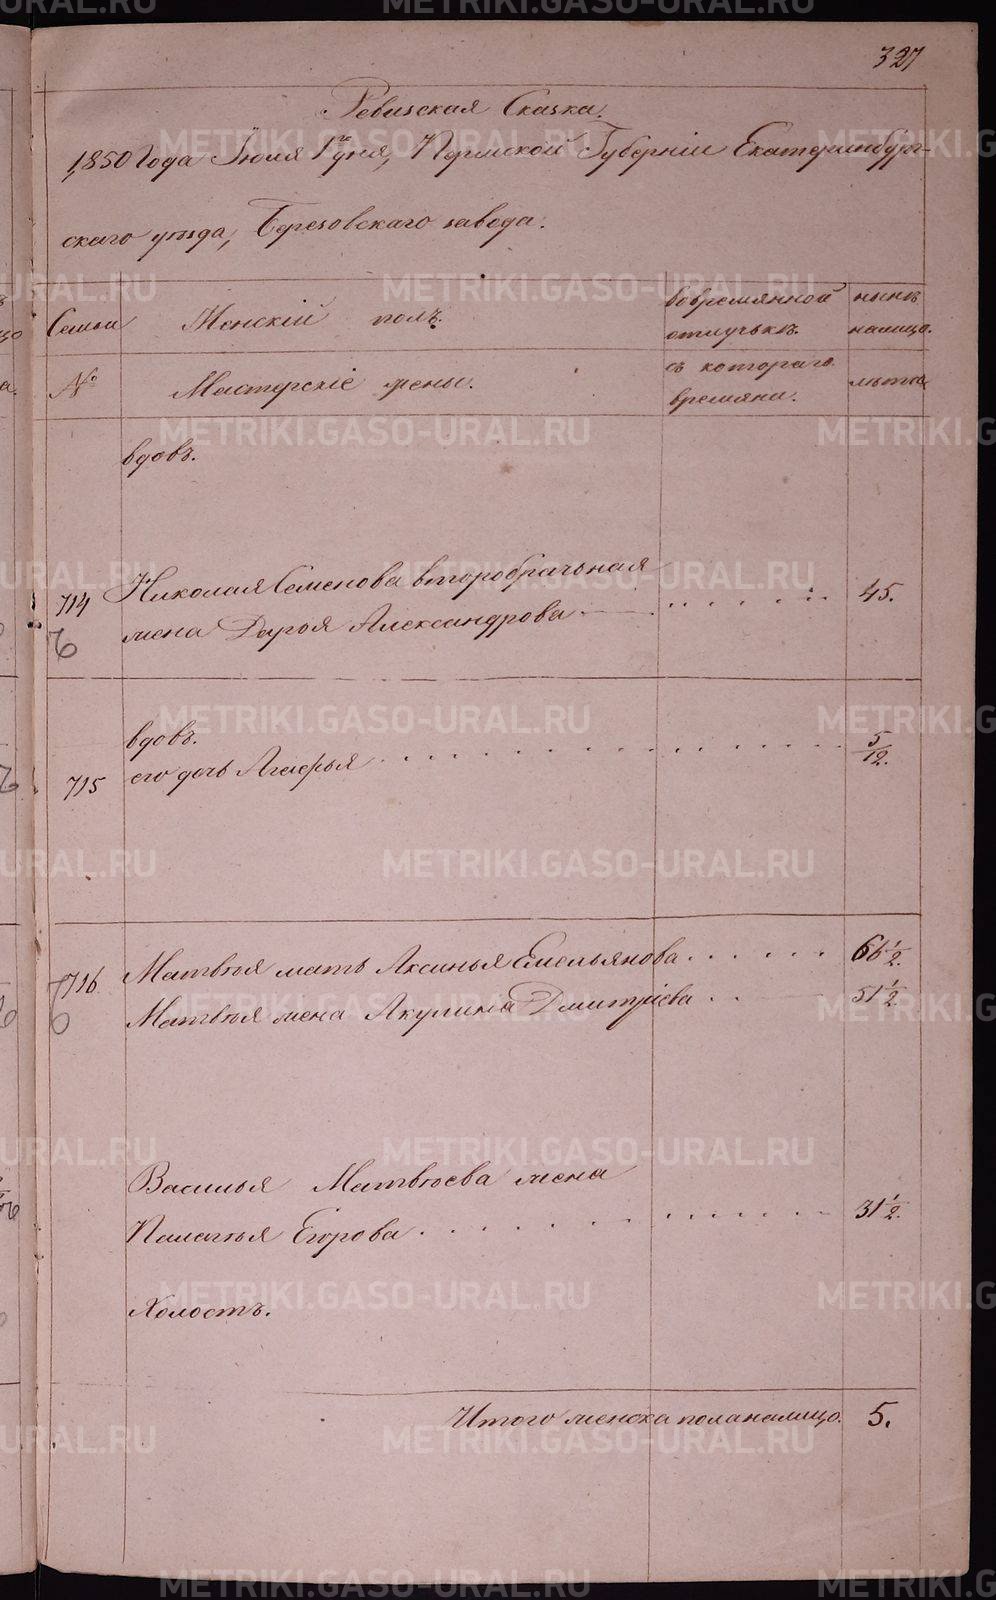 327
Ревизская Сказка.
1850 Года Июля 1го дня, Пермской Губерніи Екатеринбург-
скаго уѣзда, Березовскаго завода.
Семьи Женскій полъ. во времянной отлучькѣ. нынѣ на лицо.
№ Мастерскіе жены. съ котораго времяни. лѣта
вдовъ.
714 Николая Семенова второбрачьная
жена Дарья Александрова 45.
вдовъ.
715 его дочь Агафья 5/12.
716 Матвѣя мать Аксинья Емельянова 66 1/2.
Матвѣя жена Акулина Дмитріева 51 1/2.
Василья Матвѣева жена
Палагѣя Егорова 31 1/2.
Холостъ.
Итого женска пола на лицо. 5.
METRIKI.GASO-URAL.RU